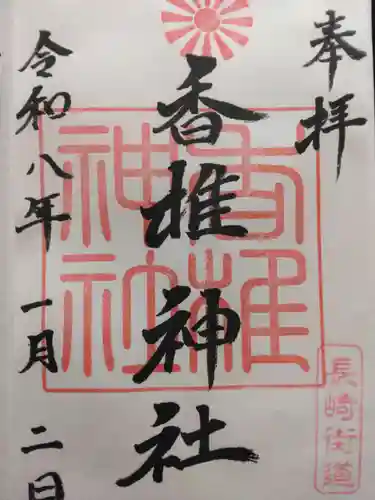 奉拝
香椎神社
令和八年一月二日
香椎神社
長崎街道